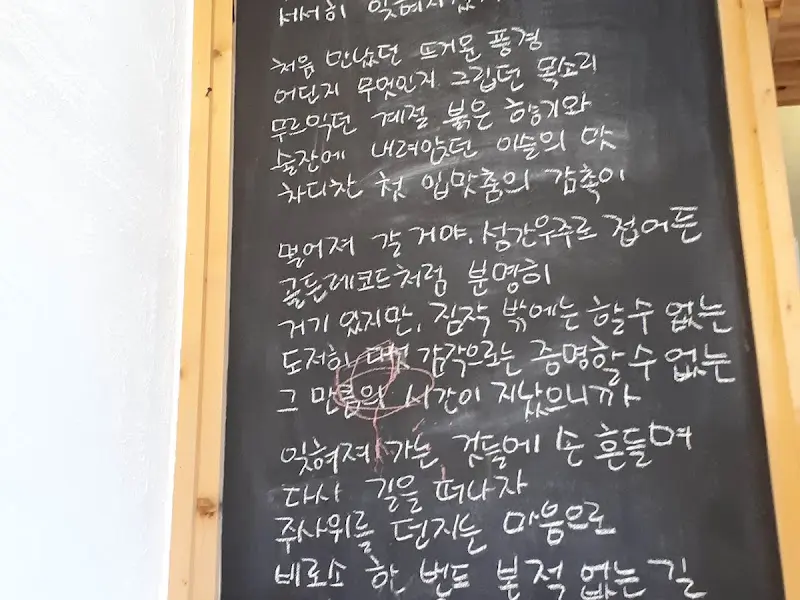 서서히 잊혀지겠지
처음 만났던 뜨거운 풍경
어딘지 무엇인지 그립던 목소리
무르익던 계절 붉은 향기와
술잔에 내려앉던 이슬의 맛
차디찬 첫 입맞춤의 감촉이
멀어져 갈 거야. 성간우주로 접어든
골든레코드처럼 분명히
거기 있지만, 짐작 밖에는 할 수 없는
도저히 감각으로는 증명할 수 없는
그 만큼의 시간이 지났으니까
잊혀져 가는 것들에 손 흔들며
다시 길을 떠나자
주사위를 던지는 마음으로
비로소 한 번도 본 적 없는 길